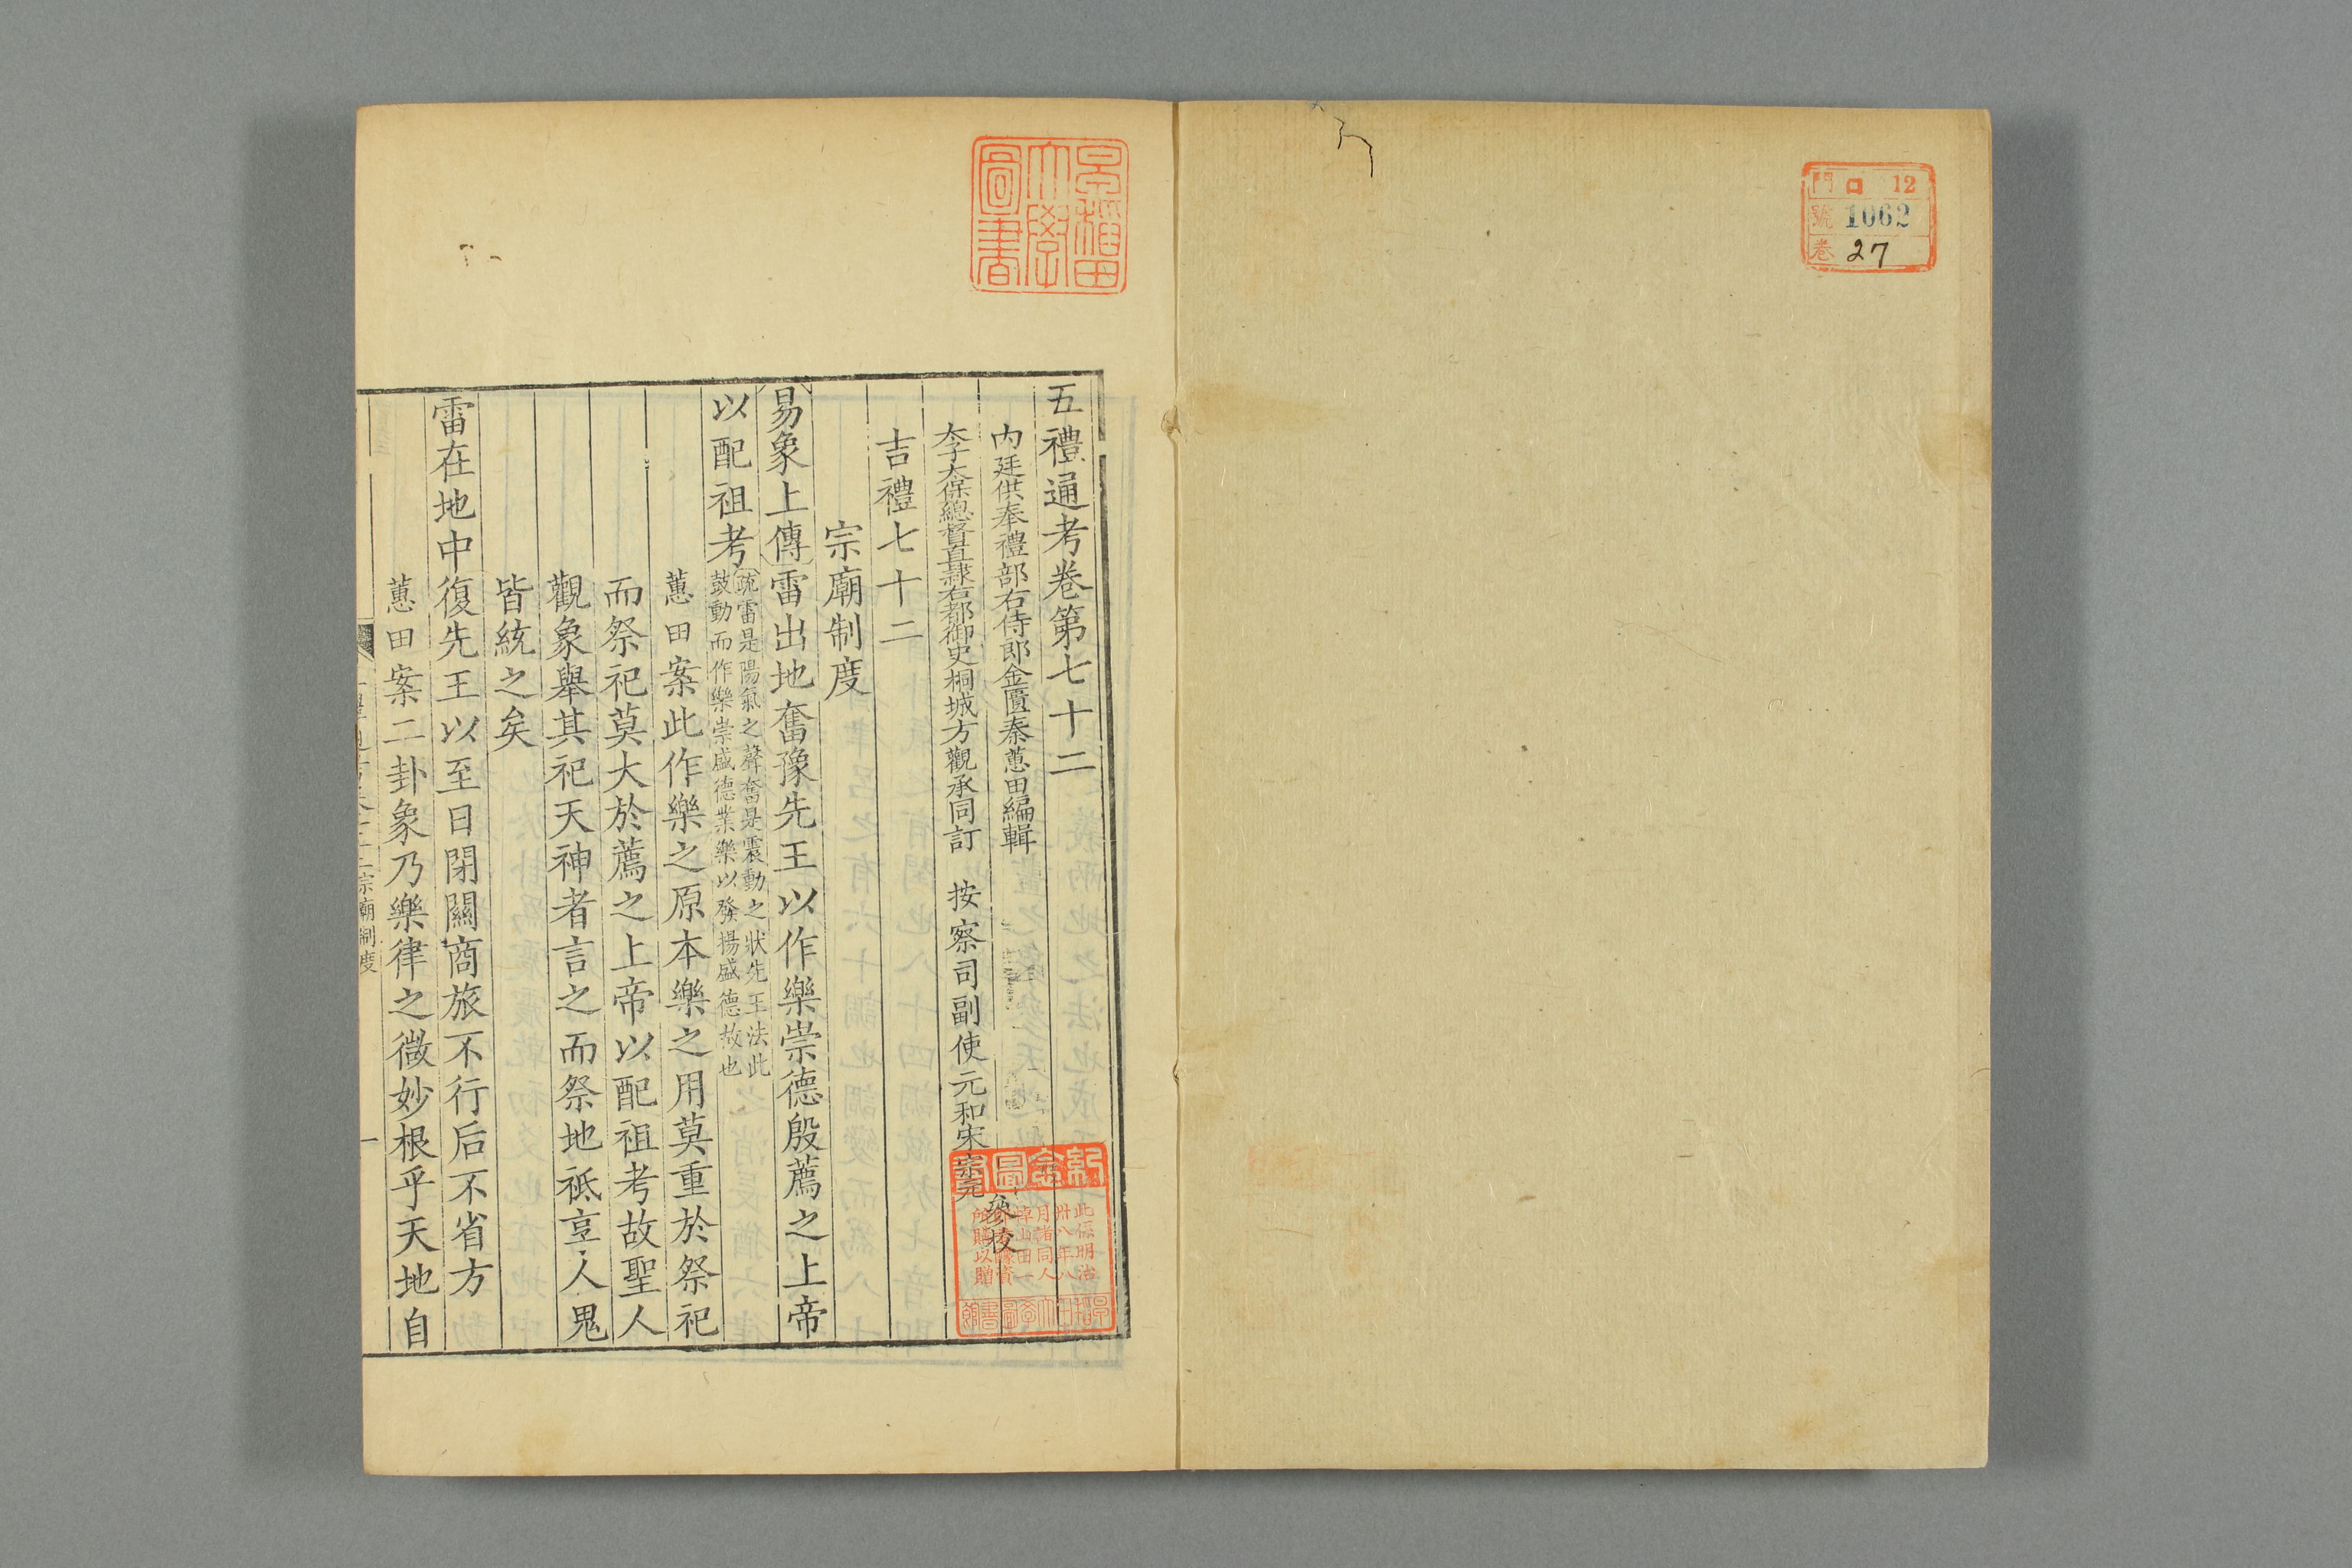 門 口 12
號 1062
卷 27
早稻田大學圖書
五禮通考卷第七十二
內廷供奉禮部右侍郎金匱秦蕙田編輯
太子太保總督直隸右都御史桐城方觀承同訂 按察司副使元和宋宗元參校
吉禮七十二
宗廟制度
易象上傳雷出地奮豫先王以作樂崇德殷薦之上帝
以配祖考
疏雷是陽氣之聲奮是震動之狀先王法此
鼓動而作樂崇盛德業樂以發揚盛德故也
蕙田案此作樂之原本樂之用莫重於祭祀
而祭祀莫大於薦之上帝以配祖考故聖人
觀象舉其祀天神者言之而祭地祗享人鬼
皆統之矣
雷在地中復先王以至日閉關商旅不行后不省方
蕙田案二卦象乃樂律之微妙根乎天地自
宗廟制度
一
紀念圖書
此係明治
卅八年八
月諸同人
所贈
早稻田大學圖書館